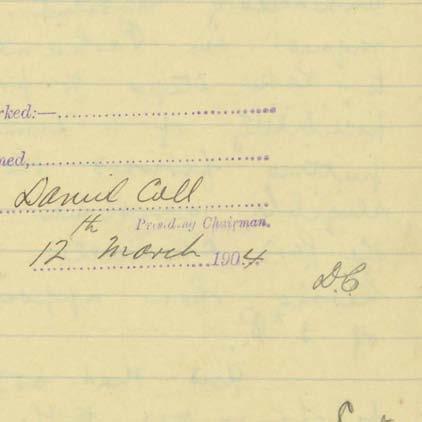 rked:—
ned,
Daniel Coll
Presiding Chairman.
12th March 1904
D.C.